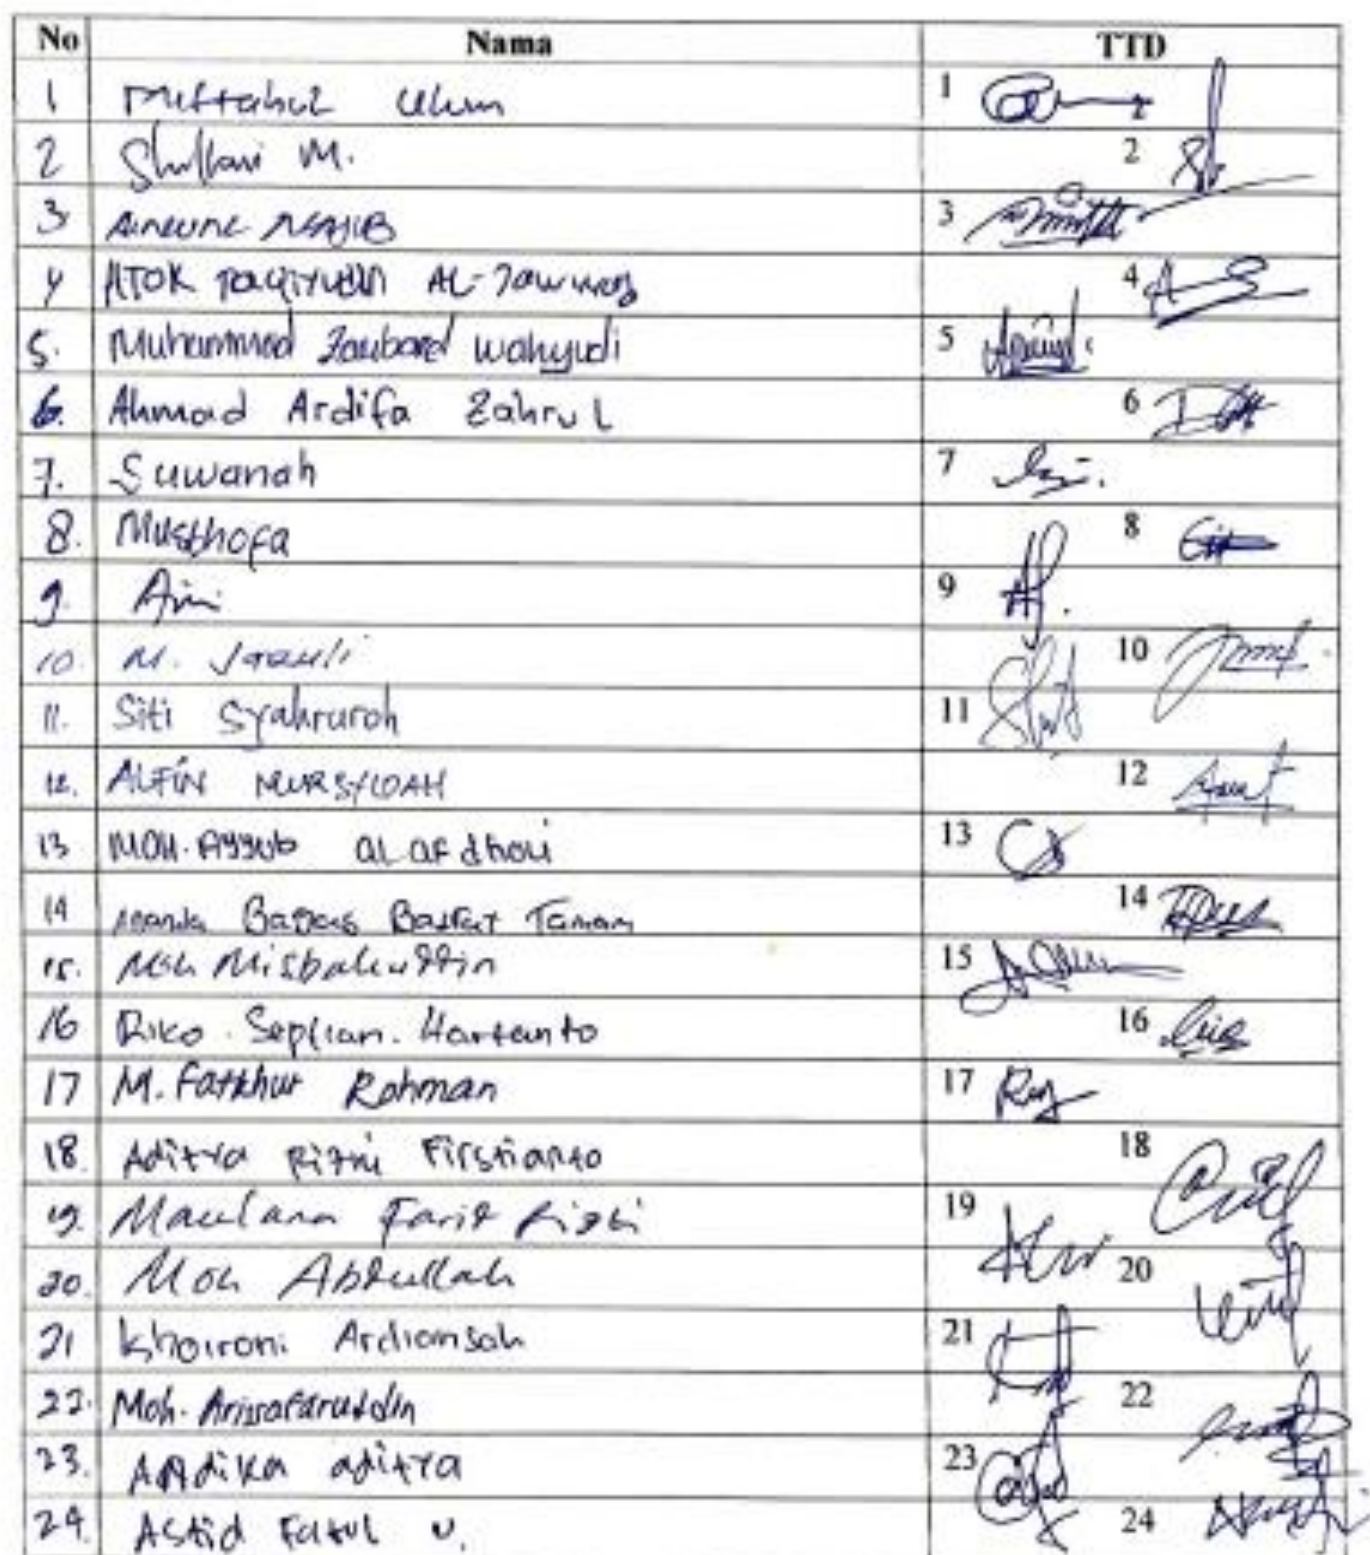 No Nama TTD
1 Miftahul Ulum 1
2 M. 2
3 3
4 ATOK TaqiYudin AL- 4
5. Muhammad Zaubard Wahyudi 5
6. Ahmad Ardifa Zahrul 6
7. Suwanah 7
8. Musthofa 8
9. Aini 9
10. M. 10
11. Siti Syahruroh 11
12. ALFIN MURSYIDAH 12
13 MOH. AYYUB aL afdholi 13
14 Ananda Bagus Tamam 14
15. Moh Misbahuddin 15
16 Riko. Septian. Hartanto 16
17 M. Fatkhur Rohman 17
18. Aditya Rizki Firstianto 18
19. Maulana Farid Rizki 19
20. Moh Abdullah 20
21 Khoironi Ardiansah 21
22. Moh. 22
23. Andika aditya 23
24. Astid Fatul U. 24